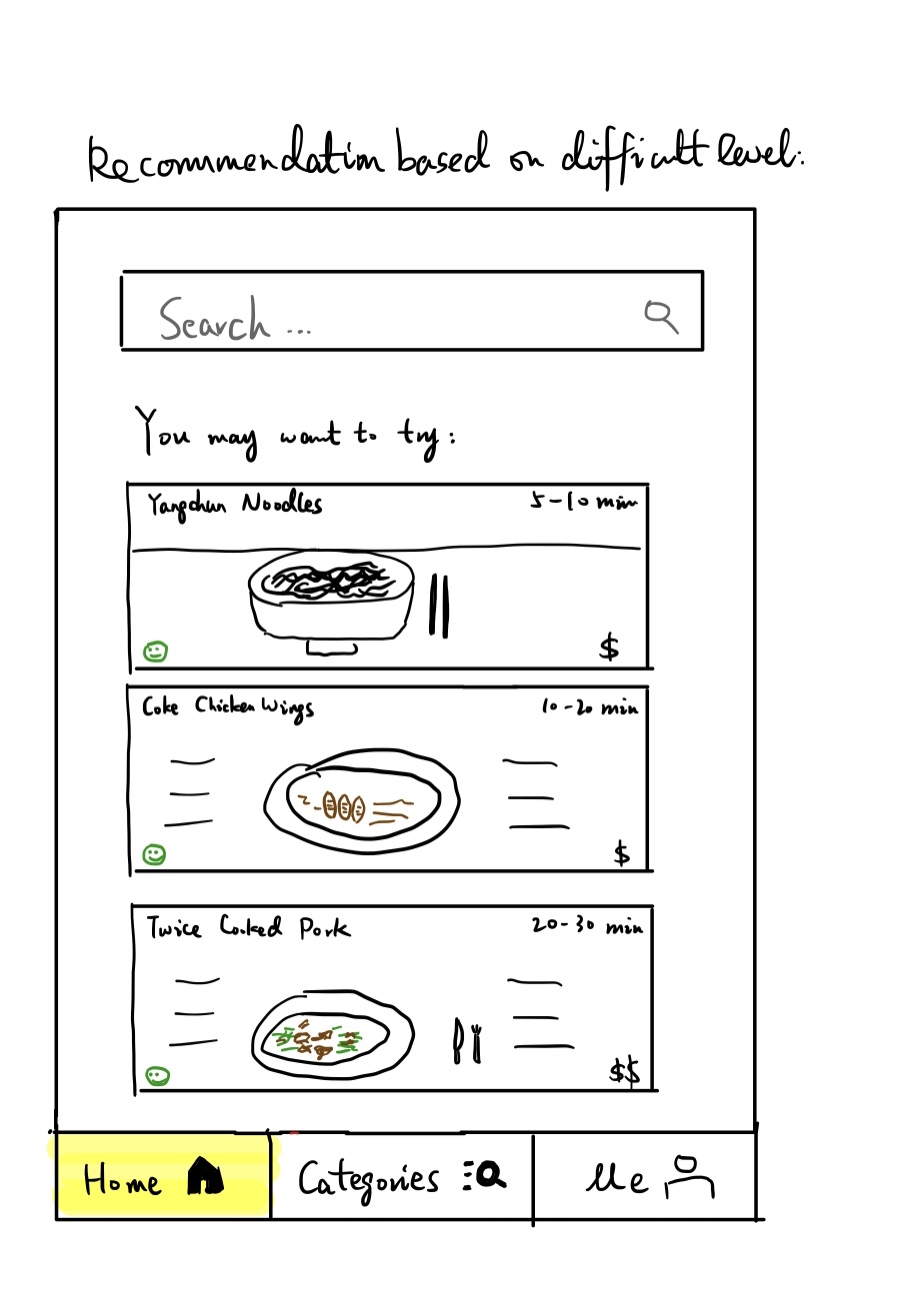 Recommendation based on difficult level:
Search ...
You may want to try:
Yangchun Noodles 5-10 min
$
Coke Chicken Wings 10-20 min
$
Twice Cooked Pork 20-30 min
$$
Home Categories Me